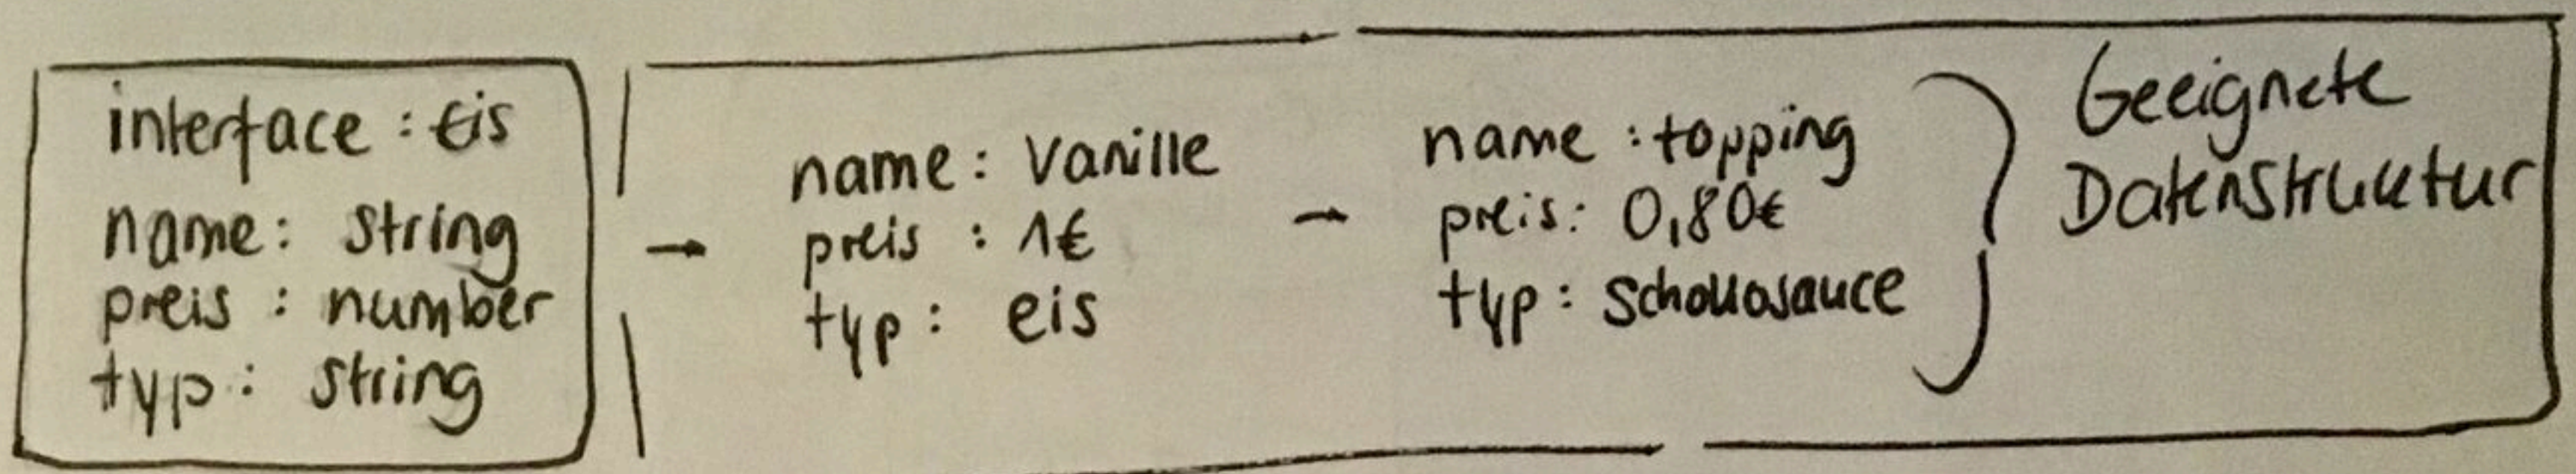 interface : Eis
name: string
preis : number
typ: string
name: Vanille
preis : 1€
typ: eis
name : topping
preis: 0,80€
typ: Schokosauce
Geeignete
Datenstruktur